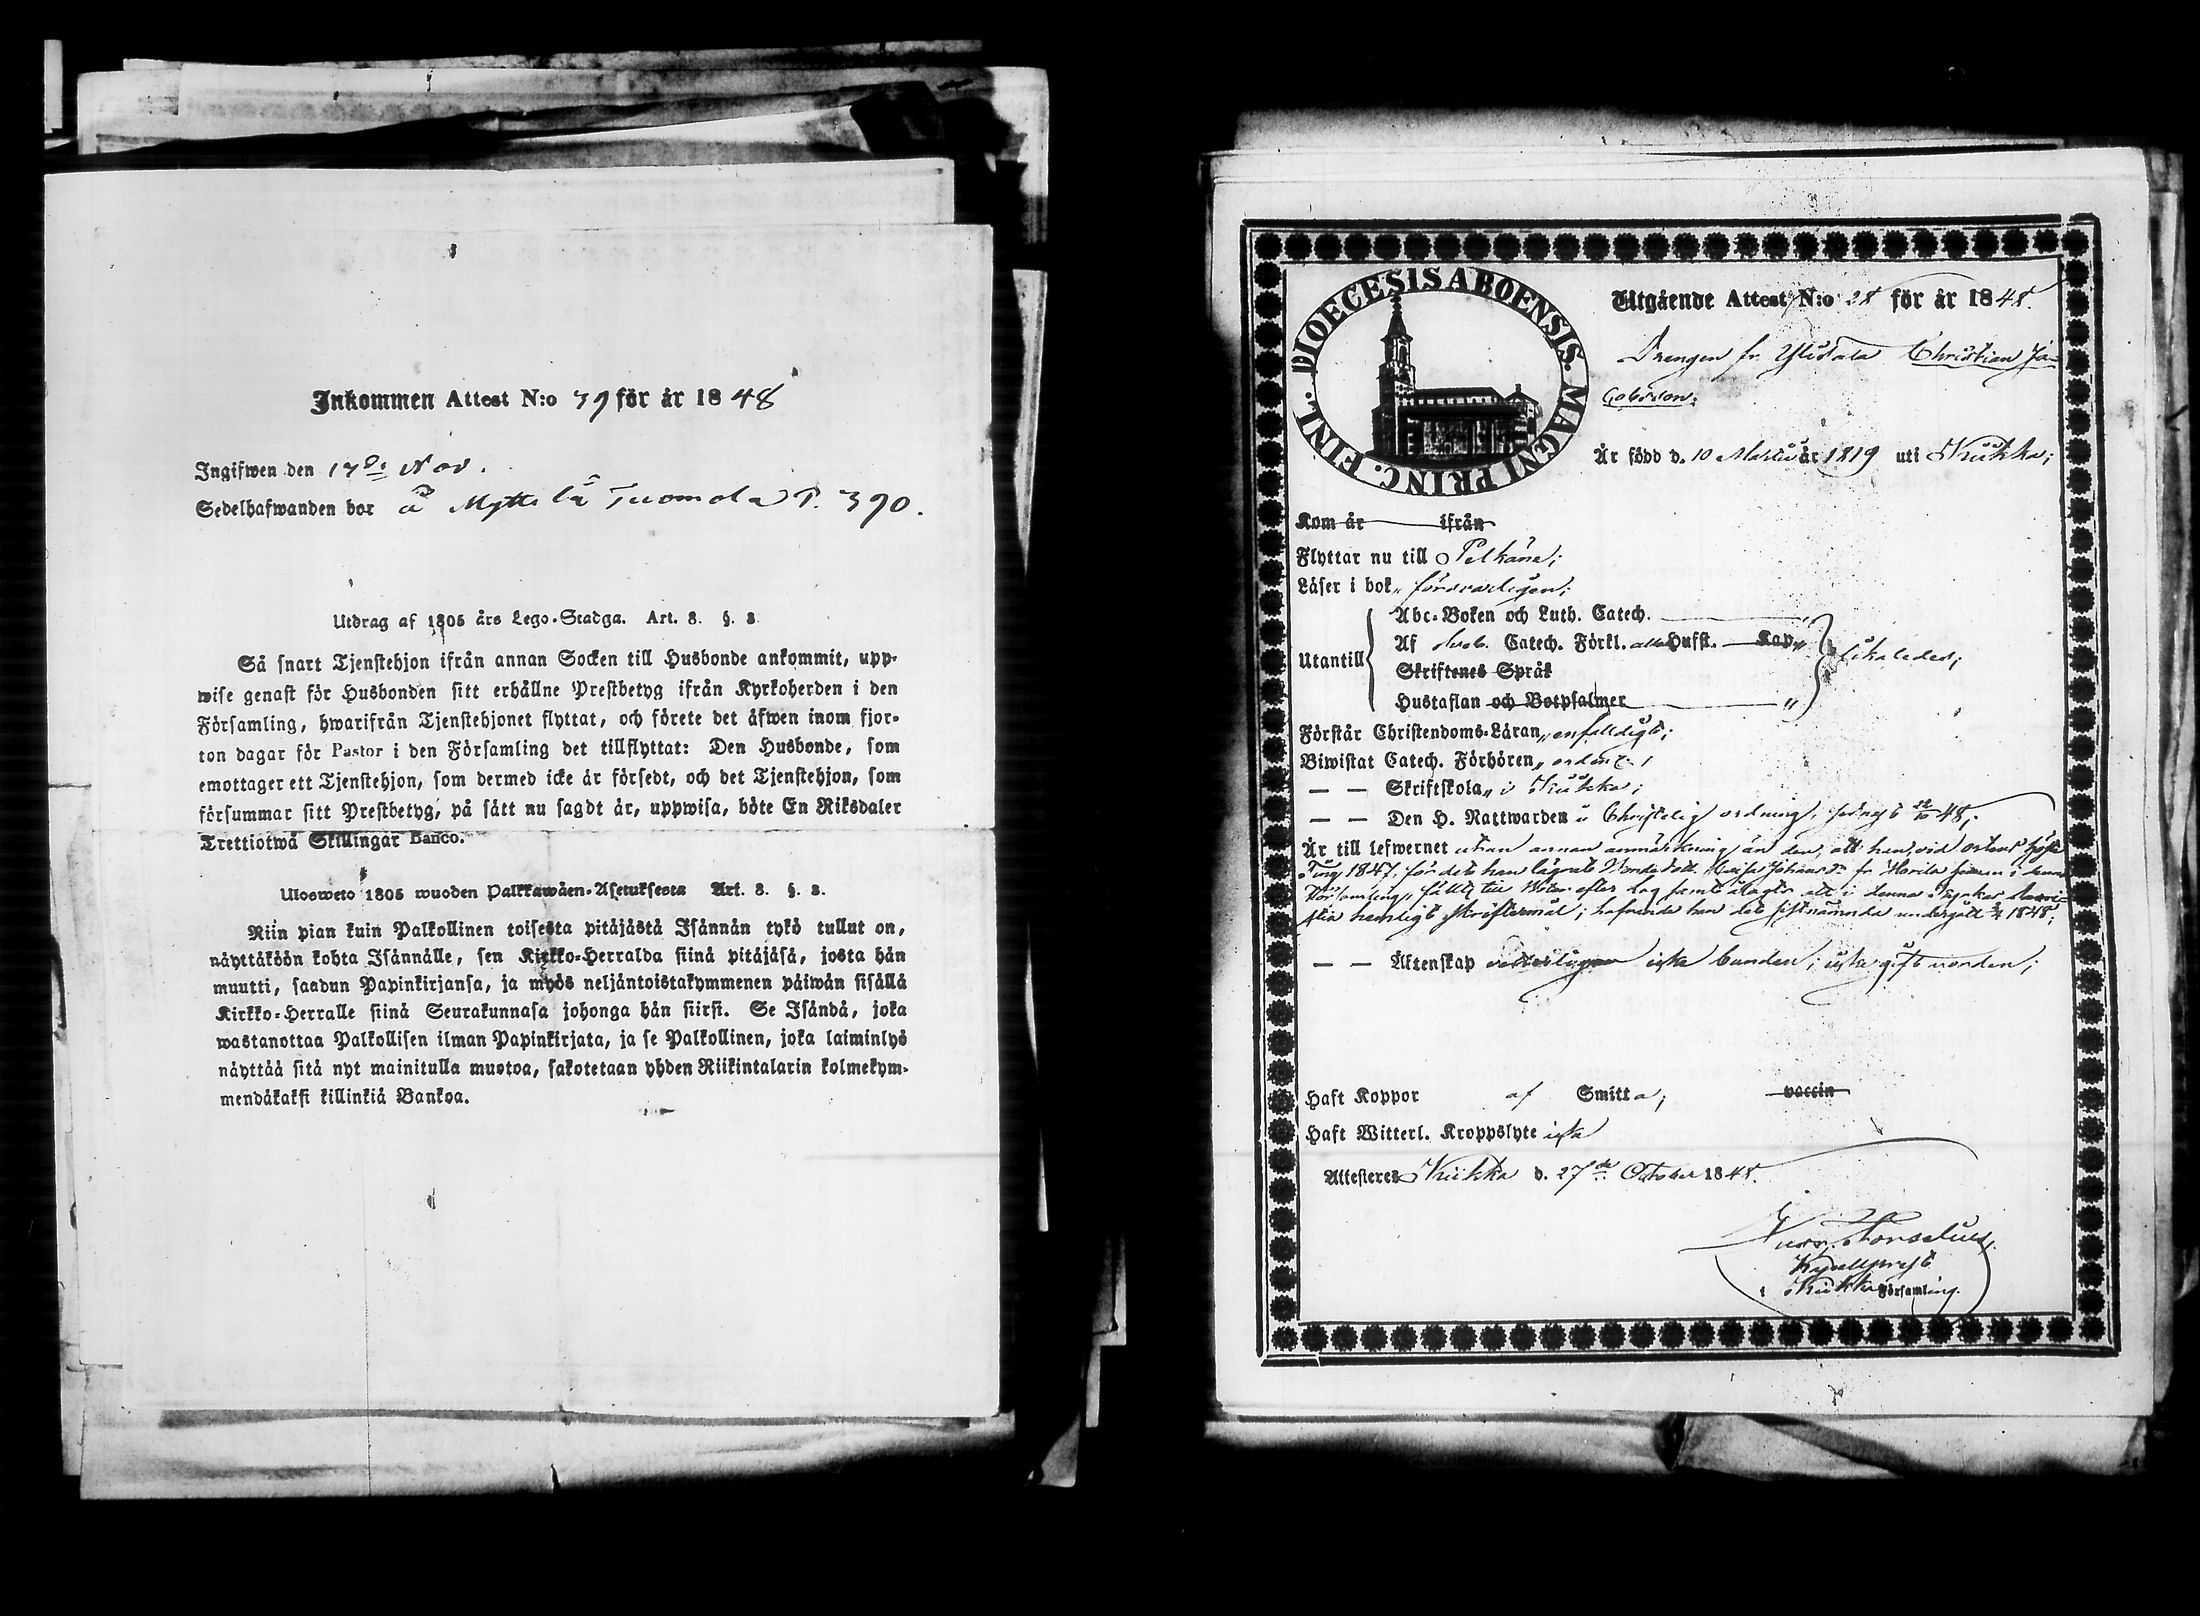 Inkommen Attest N:o 39 för år 1848
Ingifwen den 17de Nov.
Sedelhafwanden bor å Myttälä Tuomola P. 390.
Utdrag af 1805 års Lego-Stadga. Art. 8. §. 8.
Så snart Tjenstehjon ifrån annan Socken till Husbonde ankommit, upp-
wise genast för Husbonden sitt erhållne Prestbetyg ifrån Kyrkoherden i den
Församling, hwarifrån Tjenstehjonet flyttat, och förete det äfwen inom fjor-
ton dagar för Pastor i den Församling det tillflyttat: Den Husbonde, som
emottager ett Tjenstehjon, som dermed icke är försedt, och det Tjenstehjon, som
försummar sitt Prestbetyg, på sätt nu sagdt är, uppwisa, böte En Riksdaler
Trettiotwå Skillingar Banco.
Ulosweto 1805 wuoden Palkkawäen-Asetuksesta Art. 8. §. 8.
Niin pian kuin Palkollinen toisesta pitäjästä Isännän tykö tullut on,
näyttäköön kohta Isännälle, sen Kirkko-Herralda siinä pitäjäsä, josta hän
muutti, saadun Papinkirjansa, ja myös neljäntoistakymmenen päiwän sisällä
Kirkko-Herralle siinä Seurakunnasa johonga hän siirsi. Se Isändä, joka
wastanottaa Palkollisen ilman Papinkirjata, ja se Palkollinen, joka laiminlyö
näyttää sitä nyt mainitulla muotoa, sakotetaan yhden Riikintalarin kolmekym-
mendäkaksi killinkiä Bankoa.
DIOECESIS ABOENSIS. MAGNI PRINC. FINL.
Utgående Attest N:o 28 för år 1848.
Drengen fr. Ylistalo Christian Ja-
cobsson;
Är född d. 10 Martii år 1819 uti Kiikka;
Kom år ifrån
Flyttar nu till Pelkäne;
Läser i bok försvarligen;
Abc-Boken och Luth. Catech.
Utantill Af Sveb. Catech. Förkl. alla Hufst. Kap. likaledes;
Skriftenes Språk
Hustaflan och Botpsalmer "
Förstår Christendoms-Läran enfalldigt;
Biwistat Catech. Förhören ordentl.;
— — Skriftskola i Kiikka;
— — Den H. Nattwarden i Christelig ordning, sednast 48;
Är till lefwernet utan annan anmärkning än den, att han, vid Höste
Ting 1847, för det han lägrat Johansd:r fr. i denna
Församling, fällts till böter efter lag samt ålagts att i denna Kyrkas Sacri-
stia hemligt skriftermål; hafvande han det sistnämnda undergått 1848;
— — Äktenskap icke bunden; icke gift vorden;
Haft Koppor af Smitta; vaccin
Haft Witterl. Kroppslyte icke
Attesteres Kiikka d. 27de October 1848.
Kapellprest
i Kiikka Församling.